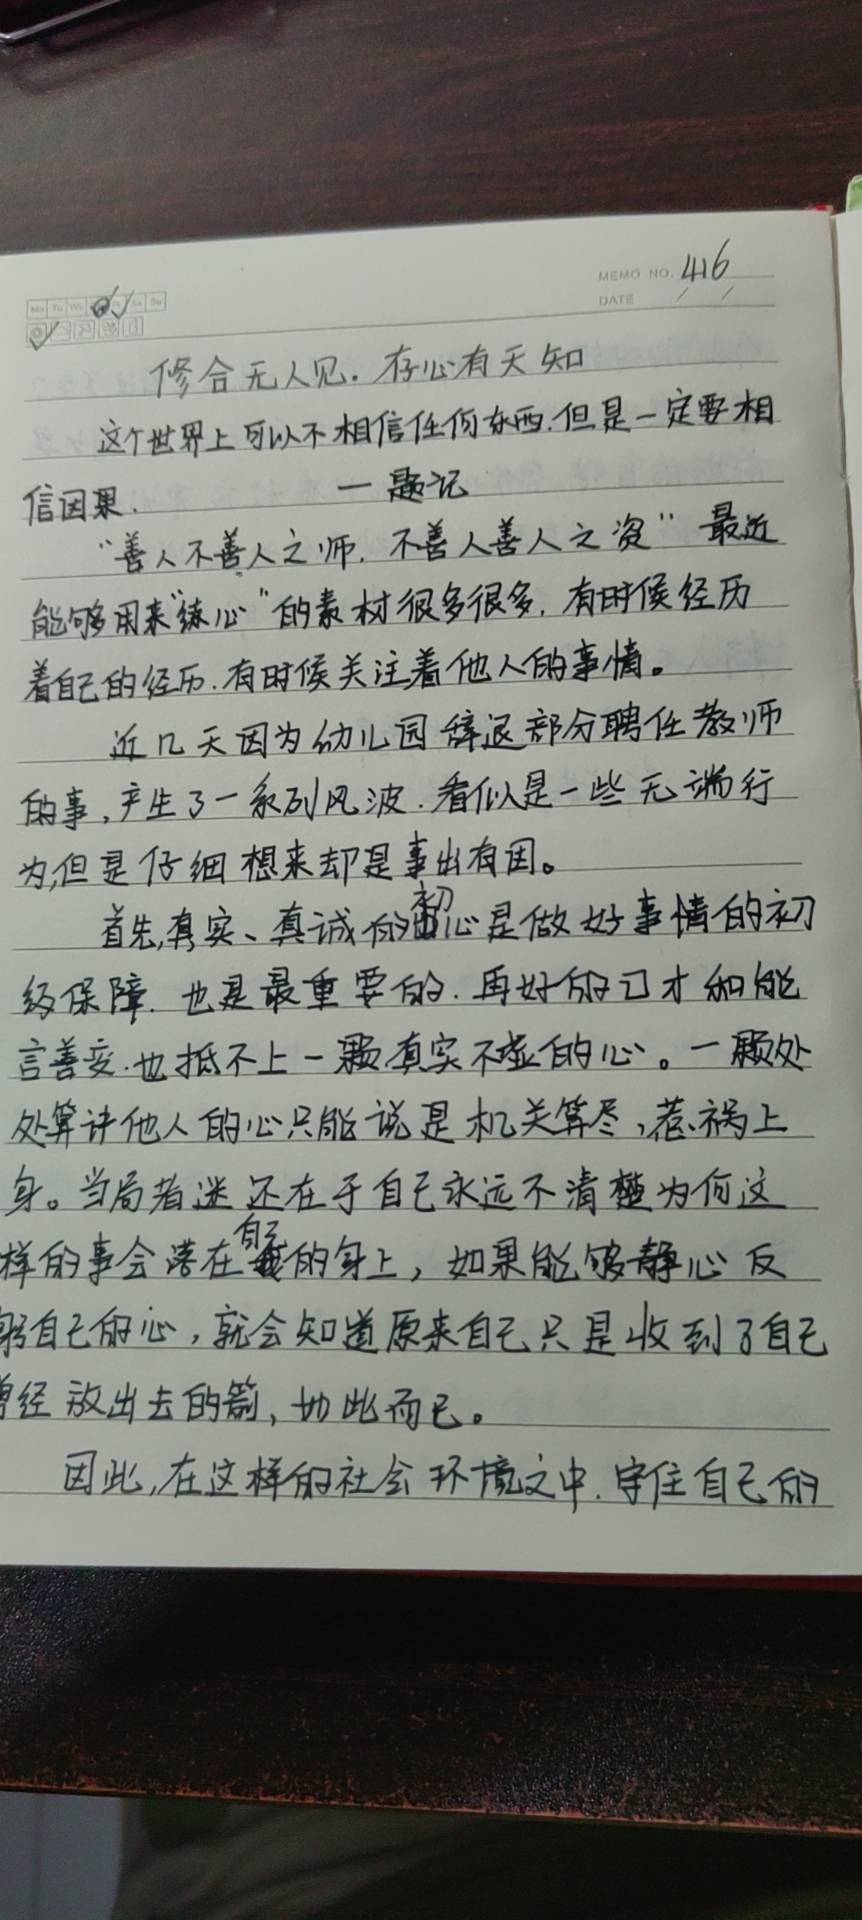 MEMO NO. 416
DATE / /
Mo Tu We Sa Su
修合无人见.存心有天知
这个世界上可以不相信任何东西.但是一定要相
信因果. 一题记
“善人不善人之师.不善人善人之资” 最近
能够用来“练心”的素材很多很多.有时候经历
着自己的经历.有时候关注着他人的事情。
近几天因为幼儿园辞退部分聘任教师
的事,产生了一系列风波.看似是一些无端行
为,但是仔细想来却是事出有因。
首先,真实、真诚的初心是做好事情的初
级保障.也是最重要的.再好的口才和能
言善变.也抵不上一颗真实不虚的心。一颗处
处算计他人的心只能说是机关算尽,惹祸上
身。当局者迷还在于自己永远不清楚为何这
样的事会落在自己的身上,如果能够静心反
躬自己的心,就会知道原来自己只是收到了自己
曾经放出去的箭,如此而已。
因此,在这样的社会环境之中.守住自己的